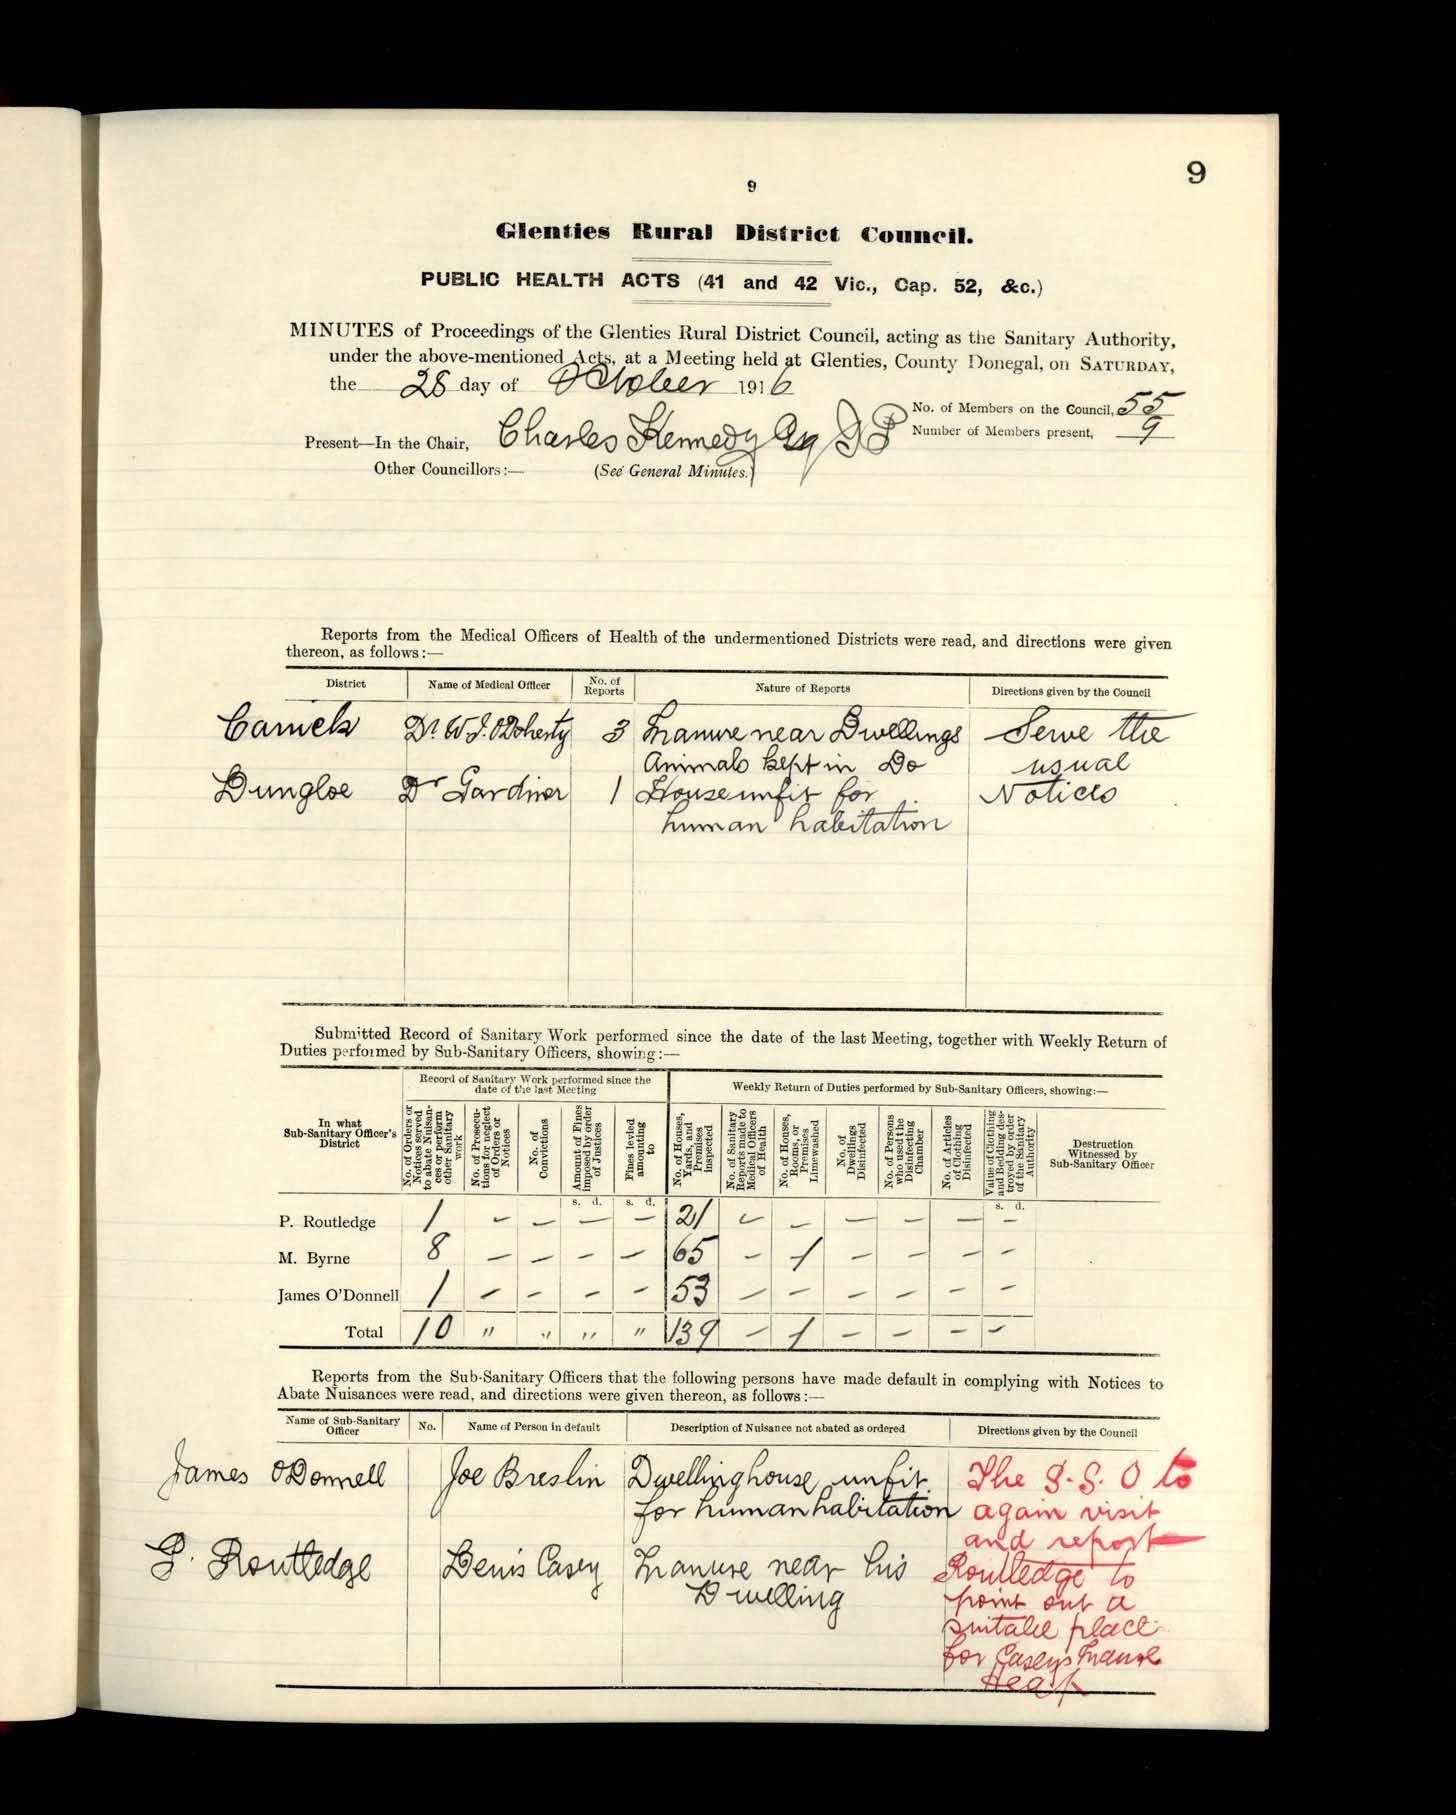 9
9
Glenties Rural District Council.
PUBLIC HEALTH ACTS (41 and 42 Vic., Cap. 52, &c.)
MINUTES of Proceedings of the Glenties Rural District Council, acting as the Sanitary Authority,
under the above-mentioned Acts, at a Meeting held at Glenties, County Donegal, on SATURDAY,
the 28 day of October 1916
No. of Members on the Council, 55
Present—In the Chair, Charles Kennedy Esq JP
Number of Members present, 9
Other Councillors:— (See General Minutes.)
Reports from the Medical Officers of Health of the undermentioned Districts were read, and directions were given
thereon, as follows:—
District Name of Medical Officer No. of Reports Nature of Reports Directions given by the Council
Carrick Dr. W.J. O'Doherty 3 Manure near Dwellings Serve the
Animals kept in Do usual
Dungloe Dr Gardiner 1 House unfit for Notices
human habitation
Submitted Record of Sanitary Work performed since the date of the last Meeting, together with Weekly Return of
Duties performed by Sub-Sanitary Officers, showing:—
Record of Sanitary Work performed since the
date of the last Meeting
Weekly Return of Duties performed by Sub-Sanitary Officers, showing:—
In what
Sub-Sanitary Officer's
District
No. of Orders or
Notices served
to abate Nuisan-
ces or perform
other Sanitary
work
No. of Prosecu-
tions for neglect
of Orders or
Notices
No. of
Convictions
Amount of Fines
imposed by order
of Justices
Fines levied
amounting
to
No. of Houses,
Yards, and
Premises
Inspected
No. of Sanitary
Reports made to
Medical Officers
of Health
No. of Houses,
Rooms, or
Premises
Limewashed
No. of
Dwellings
Disinfected
No. of Persons
who used the
Disinfecting
Chamber
No. of Articles
of Clothing
Disinfected
Value of Clothing
and Bedding des-
troyed by order
of the Sanitary
Authority
Destruction
Witnessed by
Sub-Sanitary Officer
s. d. s. d. s. d.
P. Routledge 1 – – – – 21 – – – – – –
M. Byrne 8 – – – – 65 – 1 – – – –
James O'Donnell 1 – – – – 53 – – – – – –
Total 10 " " " " 139 – 1 – – – –
Reports from the Sub-Sanitary Officers that the following persons have made default in complying with Notices to
Abate Nuisances were read, and directions were given thereon, as follows:—
Name of Sub-Sanitary
Officer
No. Name of Person in default Description of Nuisance not abated as ordered Directions given by the Council
James O'Donnell Joe Breslin Dwellinghouse unfit The S.S.O to
for human habitation again visit
and report
P. Routledge Denis Casey Manure near his Routledge to
Dwelling point out a
suitable place
for Casey's Manure
Heap